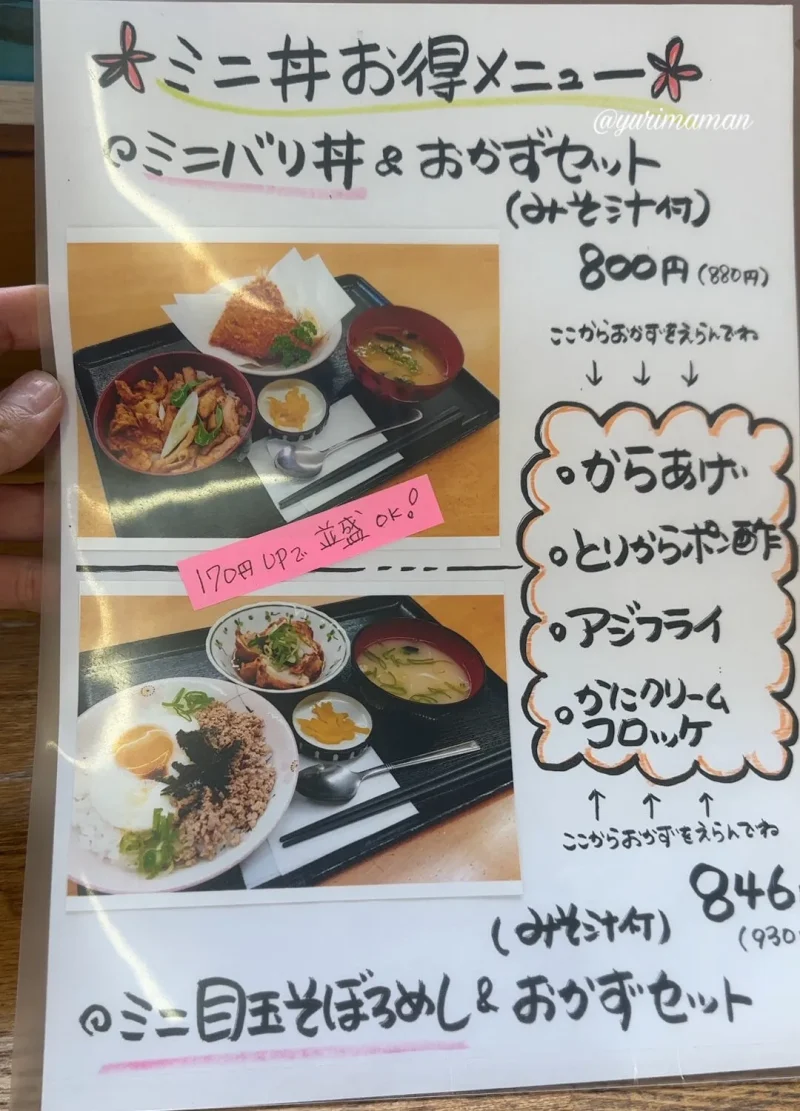 ミニ丼お得メニュー
@yurimaman
ミニバリ丼&おかずセット
(みそ汁付)
800円(880円)
ここからおかずをえらんでね
↓ ↓ ↓
からあげ
とりからポン酢
アジフライ
かにクリーム
コロッケ
170円UPで並盛OK!
↑ ↑ ↑
ここからおかずをえらんでね
846
(930
(みそ汁付)
ミニ目玉そぼろめし&おかずセット